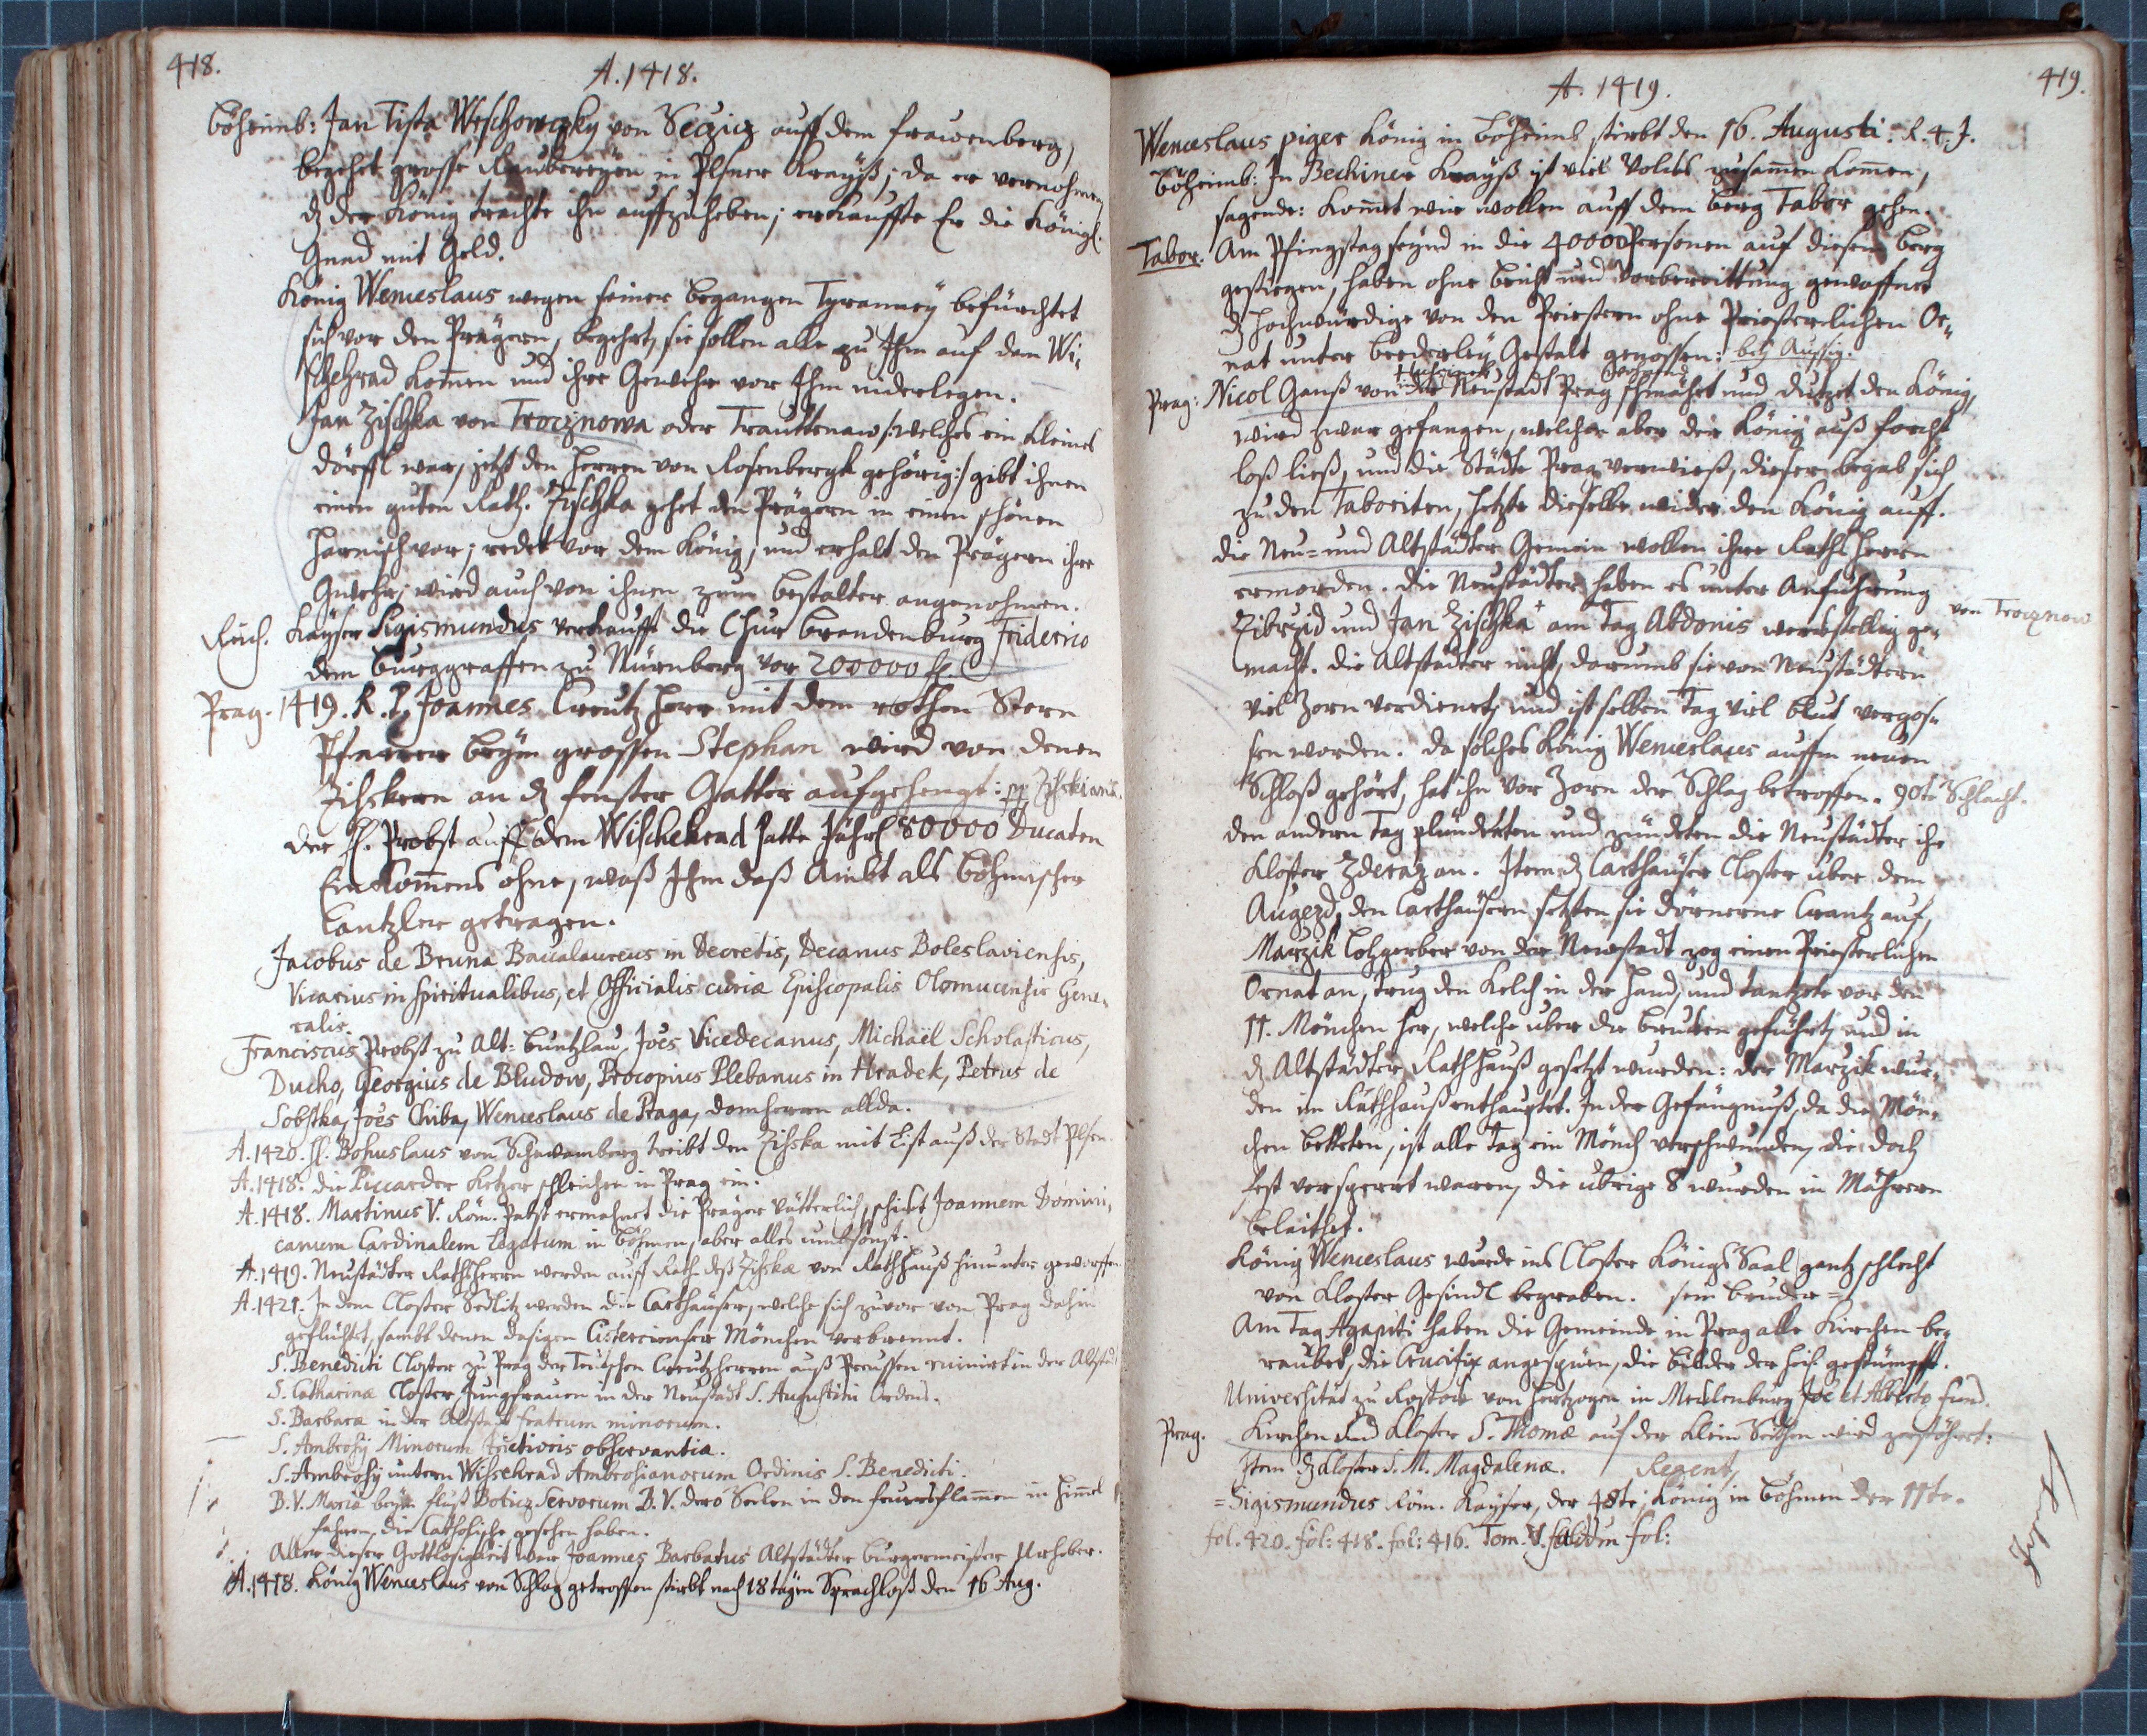 418.
A. 1418.
Böheimb: Jan Tista Weschowezky von Seczicz auff dem frawenberg,
begehet grosse Raubereÿen in Plsner Kraÿß; da er vernohmen
dz der König trachte ihn auffzuheben; erkauffte Er die Königl:
Gnad mit Geld.
König Wenceslaus wegen seiner begangen Tyranneÿ befürchtet
sich vor den Prägern, begehrt, sie sollen alle zu Ihm auf den Wi-
schehrad komen und ihre Gewehr vor Ihm niderlegen.
Jan Zischka von Trocznowa oder Trauttenaw /:welches ein kleines
dörffl war, jetzt den Herren von Rosenbergk gehörig:/ gibt ihnen
einen guten Rath. Zischka gehet den Prägern in einen schönen
Harnisch vor; redet vor dem König, und erhalt den Prägern ihre
Gwehr, wird auch von ihnen zum bestalter angenohmen.
Reich. Kaÿser Sigismundus verkaufft die Chur Brandenburg Friderico
dem Burggraffen zu Nürnberg vor 200000 fl.
Prag. 1419. R. P. Joannes Creutz Herr mit dem rothen Stern
Pfarrer beÿm grossen Stephan wird von denen
Zihskern an dz fenster Gatter aufgehengt:
der H. Probst auff dem Wischehrad hatte Jährl 80000 Ducaten
Einkomens ohne, waß Ihm daß Ambt als Böhmischer
Cantzler getragen.
Jacobus de Bruna Baccalaureus in Decretis, Decanus Boleslaviensis,
Vicarius in spiritualibus, et Officialis curiæ Episcopalis Olomucensis Gene-
ralis.
Franciscus Probst zu Alt-Buntzlau, Joës Vicedecanus, Michaël Scholasticus,
Ducho, Georgius de Bludow, Procopius Plebanus in Hradek, Petrus de
Sobstka, Joës Chiba, Wenceslaus de Praga, Domherrn allda.
A. 1420. H. Bohuslaus von Schwamberg treibt den Zihska mit List auß der Stadt Plsen.
A. 1418. die Piccarder Ketzer schleichen in Prag ein.
A. 1418. Martinus V. Röm. Pabst ermahnet die Präger vätterlich, schickt Joannem Domini-
canum Cardinalem Legatum in Böhmen, aber alles umbsonst.
A. 1419. Neustädter Rathsherrn werden auff Rath deß Zihskæ von Rathhauß hinunter geworffen
A. 1421. In dem Closter Sedlitz werden die Carthäuser, welche sich zuvor von Prag dahin
geflüchtet, sambt denen dasigen Cistercienser Mönchen verbrennt.
S. Benedicti Closter zu Prag der Teutschen Creutzherren auß Preussen ruinirt in der Altstadt
S. Catharinæ Closter Jungfrauen in der Neustadt S. Augustini Ordens.
S. Barbaræ in der Altstadt fratrum minorum.
S. Ambrosÿ Minorum strictioris observantiæ.
S. Ambrosÿ untern Wissehrad Ambrosianorum Ordinis S. Benedicti.
B. V. Mariæ beÿm fluß Boticz Servorum B. V. derō Seelen in den feuersflamen in Himel
fahren, die Catholische gesehen haben.
Aller dieser Gottlosigkeit war Joannes Barbatus Altstädter Burgermeister Urheber.
A. 1418. König Wenceslaus von Schlag getroffen stirbt nach 18 tägen Sprachloß den 16 Aug.
419.
A. 1419.
Wenceslaus piger König in Böheimb stirbt den 16. Augusti. R. 4. J.
Böheimb: In Bechiner Kraÿß ist viel Volcks zusamen komen,
sagende: Komt wir wollen auff dem berg Tabor gehen.
Tabor. Am Pfingstag seÿnd in die 40000 Personen auf diesem berg
gestiegen, haben ohne beicht und Vorbereittung gewaffnet
dz Hochwürdige von den Priestern ohne Priesterlichen Or-
nat unter beederleÿ Gestalt genossen: beÿ Aussig.
Prag: Nicol Ganß von der Neustadt Prag schmähet und dutzet den König,
wird zwar gefangen, welcher aber der König auß forcht
loß ließ, und die Städte Prag verwieß, dieser begab sich
zu den Taboriten, hetzte dieselbe wider den König auff.
die Neu- und Altstädter Gemein wollen ihre Rathsherrn
ermorden. die Neustädter haben es unter Anführung
Zibrzid und Jan Zischka + am Tag Abdonis werckstellig ge-
von Trocznow
macht. die Altstädter nicht, darumb sie von Neustädtern
viel Zorn verdienet, und ist selben Tag viel blut vergos-
sen worden. da solches König Wenceslaus auffm neuen
Schloß gehört, hat ihn vor Zorn der Schlag betroffen. 90te Schlacht.
den andern Tag plünderten und zündeten die Neustädter ihr
Kloster Zderaz an. Item dz Carthäuser Closter über dem
Augezd, den Carthäusern setzten sie dörnerne Crantz auf,
Marzik Lohgerber von der Newstadt zog einen Priesterlichen
Ornat an, trug den Kelch in der Hand, und tantzete vor den
11. Mönchen her, welche über die Brucken geführt, und in
dz Altstädter Rathhauß gesetzt wurden: der Marzik wur-
den im Rathhauß enthauptet. In der Gefängnuß, da die Mön-
chen betteten, ist alle Tag ein Mönch verschwunden, die doch
fest versperrt waren, die übrige 8 wurden in Mähren
beleithet.
König Wenceslaus wurde ins Closter Königs Saal gantz schlecht
von Kloster Gesindl begraben. sein Bruder =
Am Tag Agapiti haben die Gemeinde in Prag alle Kirchen be-
raubet, die Crucifix angespüen, die bilder der Heil. gestümpfft.
Universität zu Rostock von Hertzogen in Mecklenburg Joë et Alberto fund.
Prag. Kirchen und Kloster S. Thomæ auf der klein Seithen wird zerstöhret:
Item dz Closter S. M. Magdalenæ. Regent,
= Sigismundus Röm. Kaÿser, der 48te; König in Böhmen der 11te.
fol. 420. fol: 418. fol: 416. Tom. V. fol: